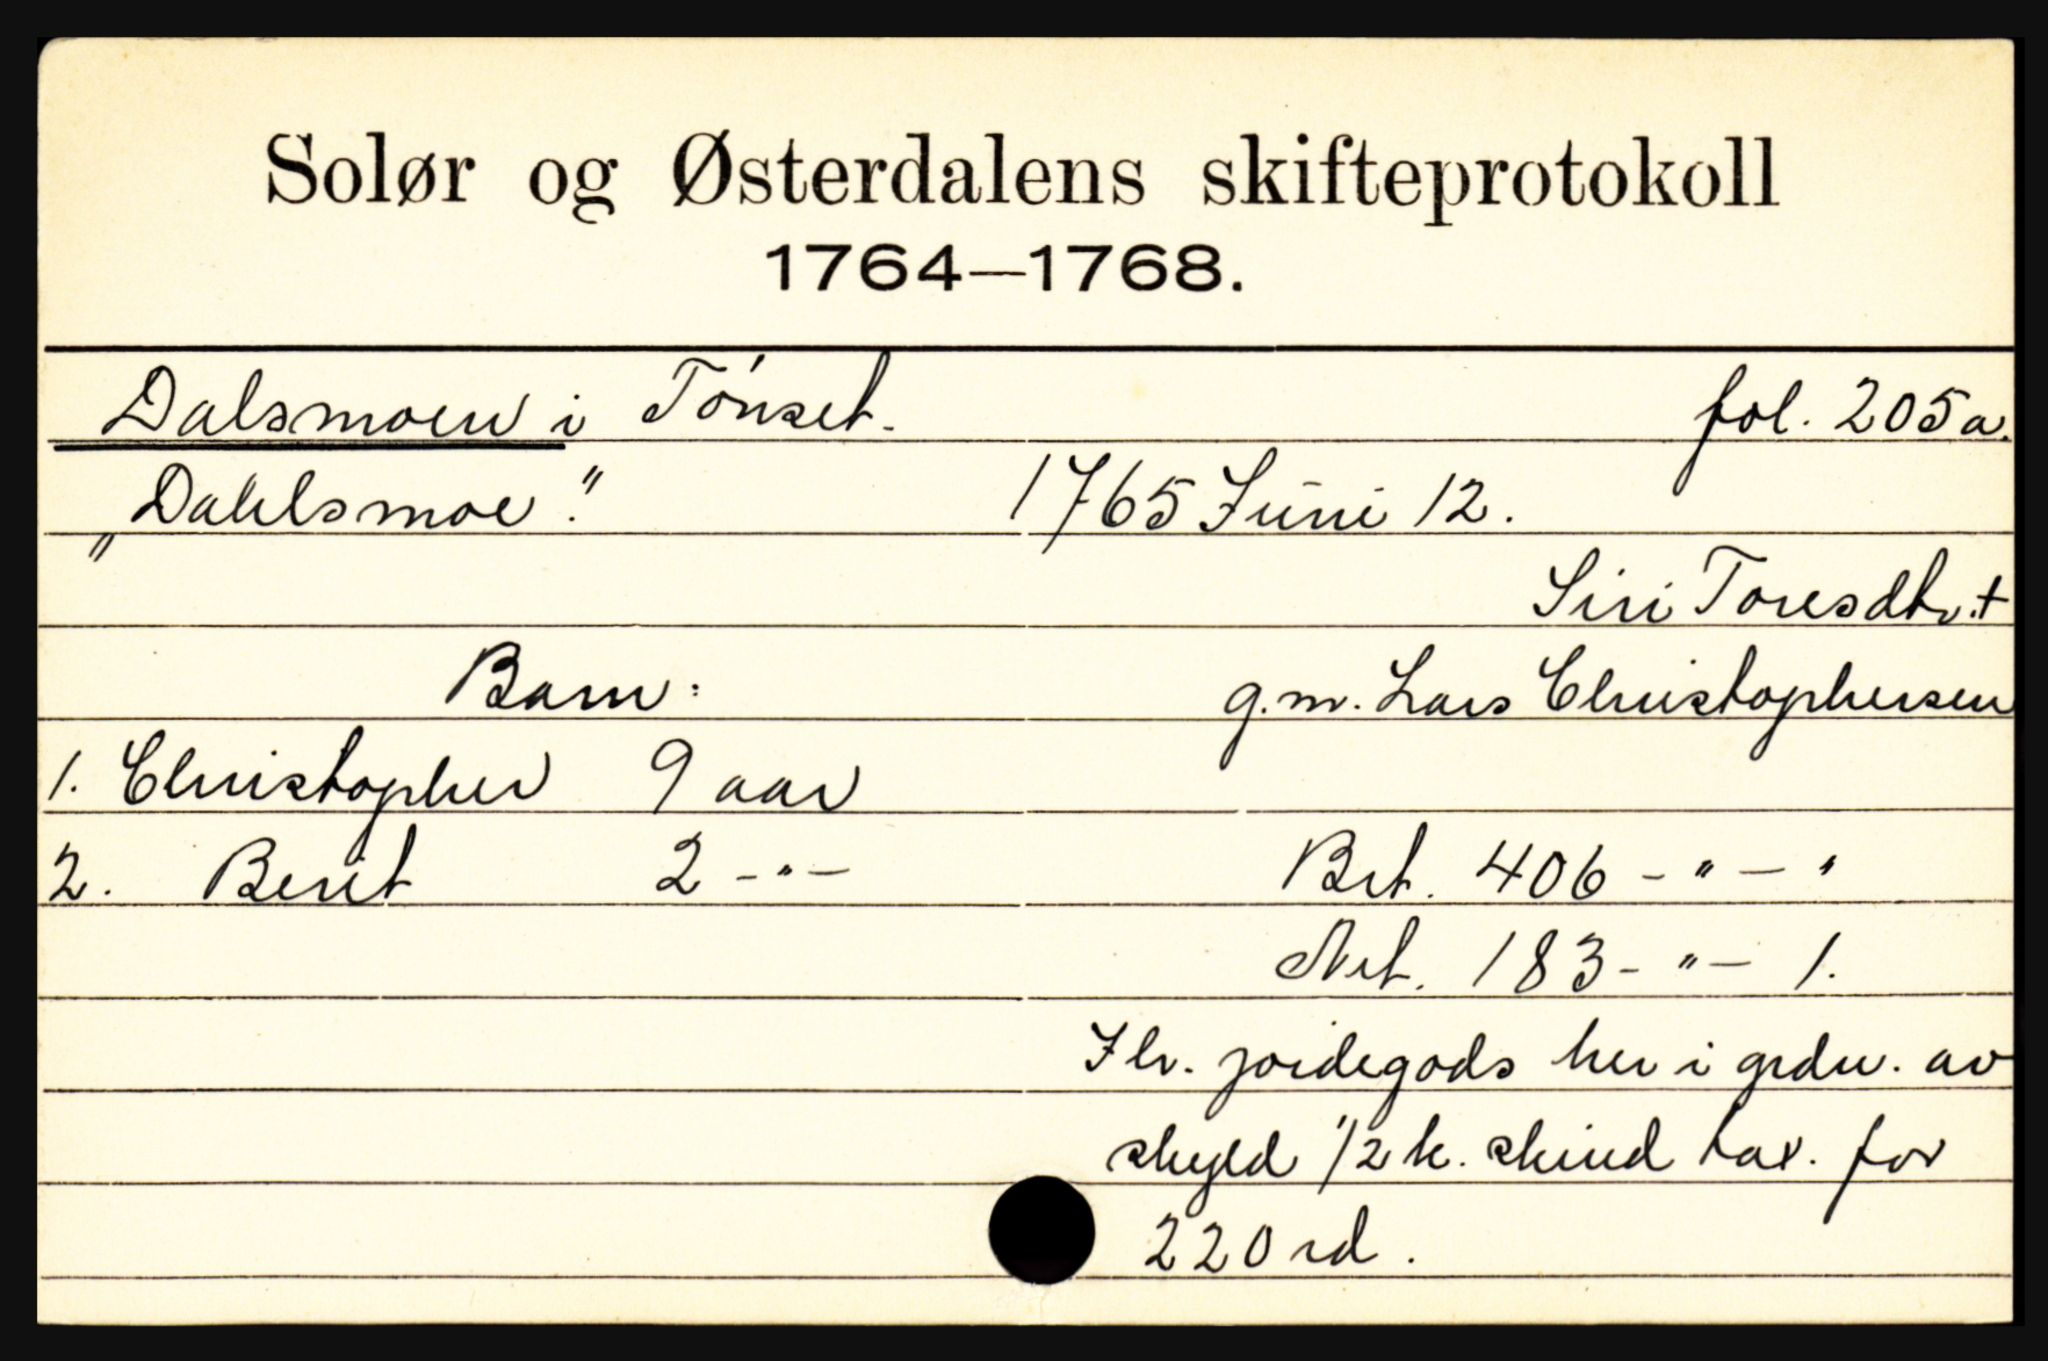 Solør og Østerdalens skifteprotokoll
1764—1768.
Dalsmoen i Tónset. fol. 205a.
"Dahlsmoe". 1765 Juni 12.
Siri Toresdtr. +
Barn: g.m. Lars Christophersen
1. Christopher 9 aar
2. Berit 2 - " - Brt. 406 - " - "
Nrt. 183 - " - 1.
Flr. jordegods her i grdn. av
skyld 1/2 k. skind tax. for
220 rd.